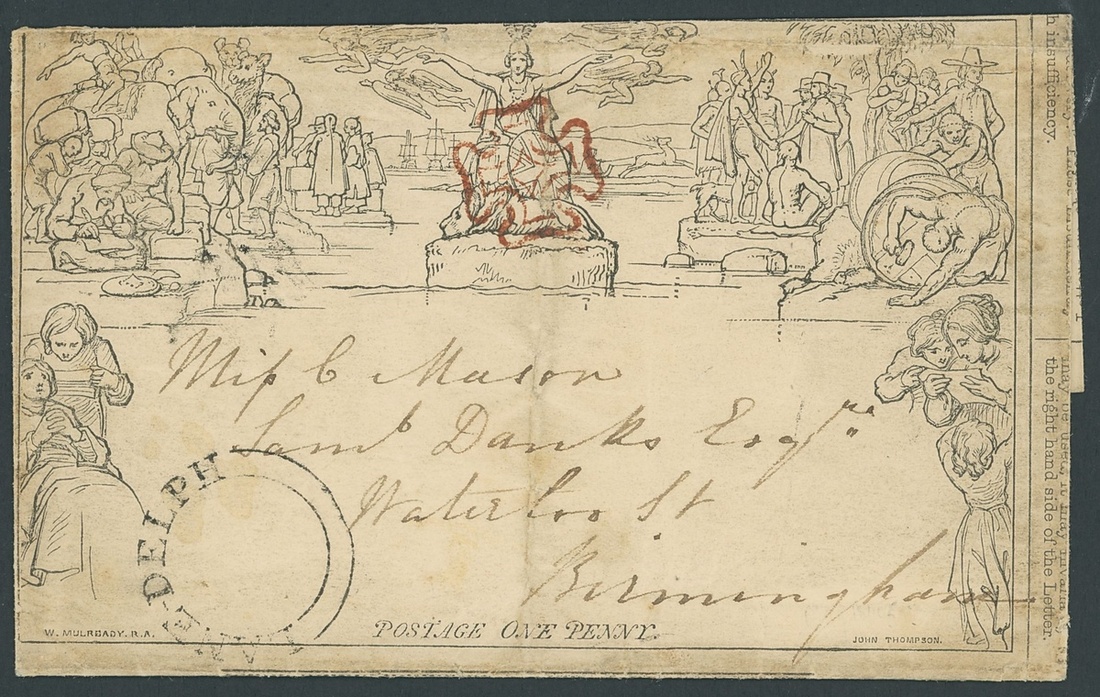 Miſs C Mason
Saml Danks Esqre
Waterloo St
Birmingham
DELPH
W. MULREADY. R.A.
POSTAGE ONE PENNY.
JOHN THOMPSON.
h insufficiency.
may be used, it may invalid
the right hand side of the Letter.